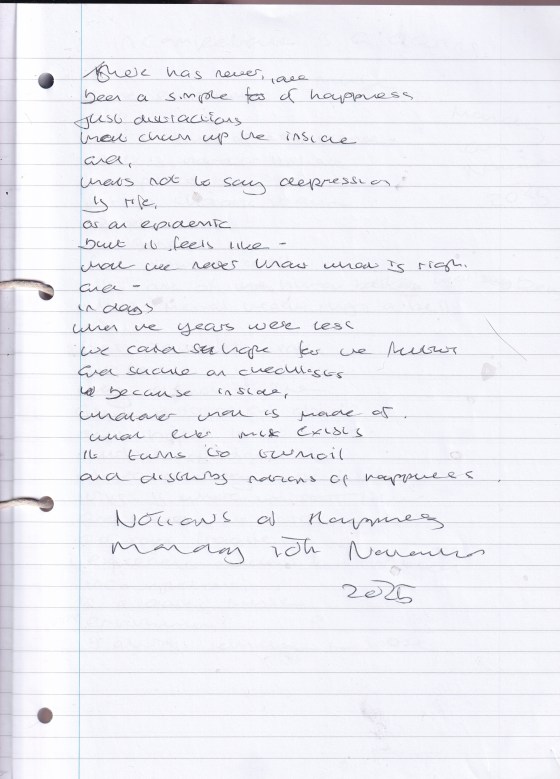 there has never, are
been a simple of happiness
just distractions
that churn up the inside
and,
thats not to say depression
is rife,
as an epidemic
but it feels like -
that we never know what is right.
and -
in days
when the years were less
we could hope for the future
and suckle on checklists
because inside,
whatever that is made of.
what ever exists
it turns to turmoil
and disturbs notions of happiness.
Notions of Happiness
Monday November
2025